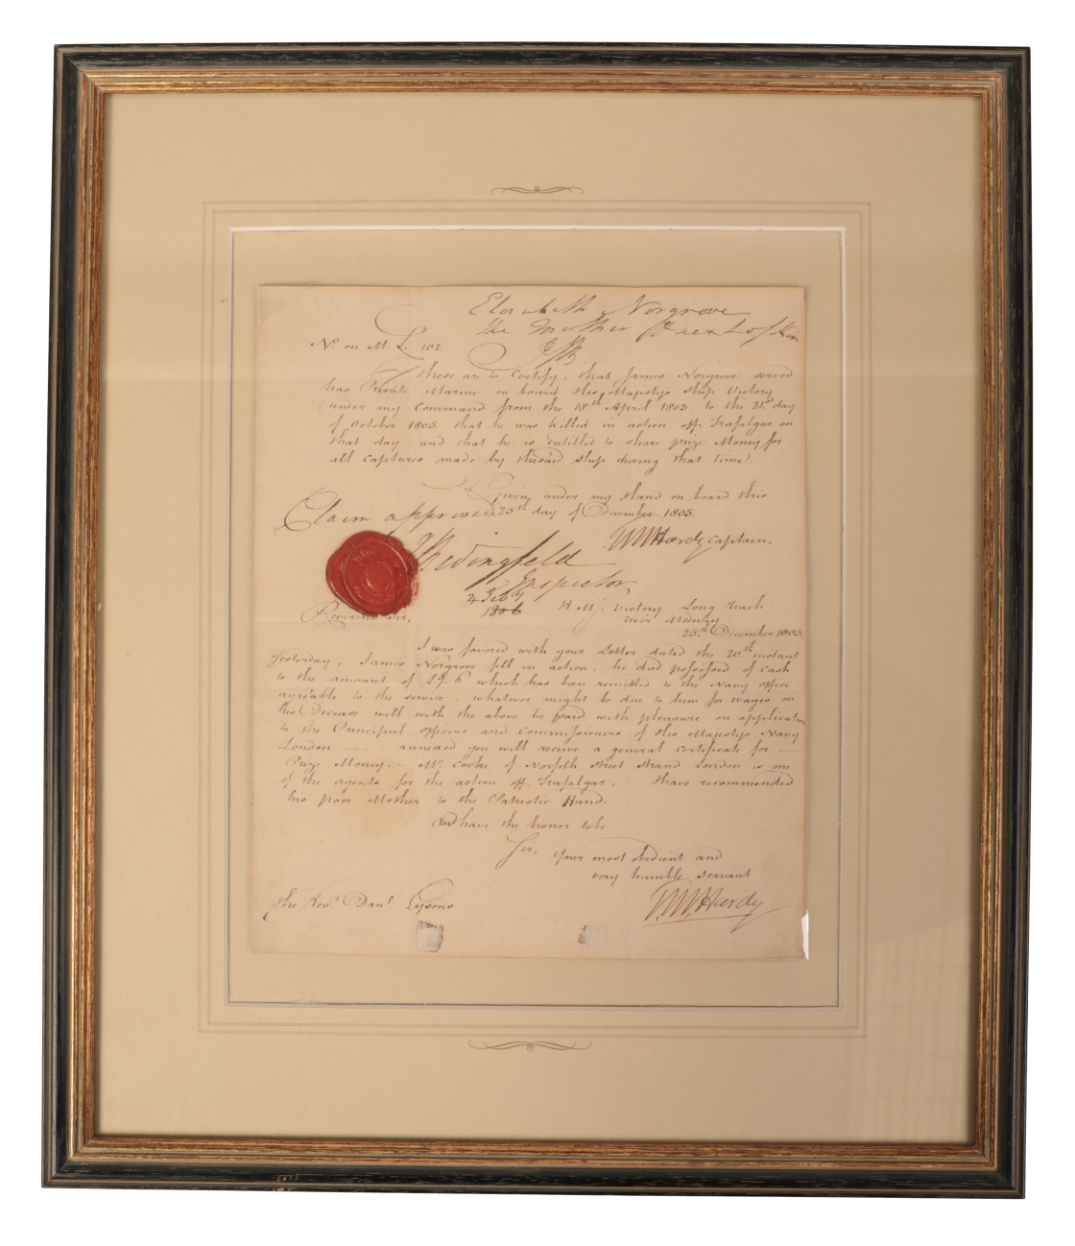 Elizabeth Norgrove
the Mother & next of Kin
JB
No on M L. 102.
These are to Certify, that James Norgrove served
as Private Marine on board His Majestys Ship Victory
under my command from the 18th April 1803. to the 21st day
of October 1805. that he was killed in action off Trafalgar on
that day, and that he is entitled to share prize Money for
all captures made by the said Ship during that time.
Given under my Hand on board this
25th day of December 1805.
Claim approved
TM Hardy Captain.
Bedingfeld
Inspector
4 Feby
1806
H M S. Victory Long Reach
River Medway
25th December 1805.
Reverend Sir,
I was favored with your Letter dated the 20th instant
yesterday, James Norgrove fell in action, he died possessed of cash
to the amount of which has been remitted to the Navy office
agreable to the service. whatever might be due to him for wages on
his Decease will with the above be paid with pleasure on application
to the Principal officers and commissioners of His Majestys Navy
London annexed you will receive a general certificate for
Prize Money. Mr. Cooke of Norfolk Street Strand London is one
of the agents for the action off Trafalgar. I have recommended
his poor Mother to the Patriotic Fund.
And have the honor to be
Sir, your most obedient and
very humble servant
TM Hardy
The Revd. Danl. Lysons